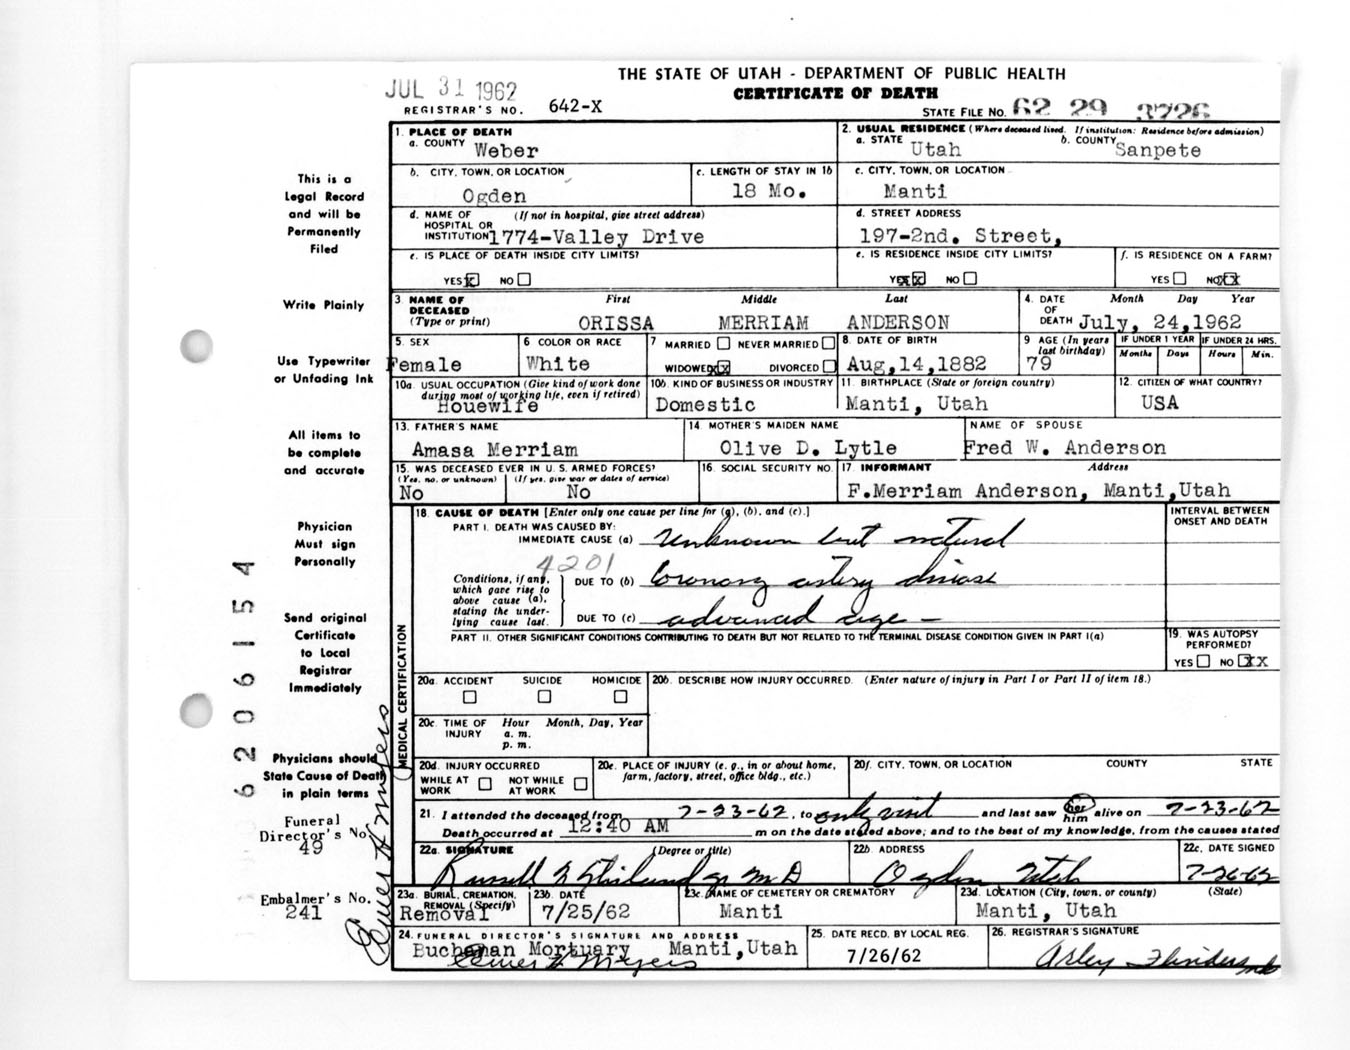 THE STATE OF UTAH - DEPARTMENT OF PUBLIC HEALTH
CERTIFICATE OF DEATH
JUL 31 1962
REGISTRAR'S NO. 642-X
STATE FILE NO. 62 29 3726
This is a
Legal Record
and will be
Permanently
Filed
Write Plainly
Use Typewriter
or Unfading Ink
All items to
be complete
and accurate
Physician
Must sign
Personally
Send original
Certificate
to Local
Registrar
Immediately
Physicians should
State Cause of Death
in plain terms
Funeral
Director's No.
49
Embalmer's No.
241
6206154
Elmer H Myers
1. PLACE OF DEATH
a. COUNTY Weber
2. USUAL RESIDENCE (Where deceased lived. If institution: Residence before admission)
a. STATE Utah b. COUNTY Sanpete
b. CITY, TOWN, OR LOCATION
Ogden
c. LENGTH OF STAY IN 1b
18 Mo.
c. CITY, TOWN, OR LOCATION
Manti
d. NAME OF (If not in hospital, give street address)
HOSPITAL OR
INSTITUTION 1774-Valley Drive
d. STREET ADDRESS
197-2nd. Street,
e. IS PLACE OF DEATH INSIDE CITY LIMITS?
YES X NO
e. IS RESIDENCE INSIDE CITY LIMITS?
YES X NO
f. IS RESIDENCE ON A FARM?
YES NO X
3. NAME OF DECEASED (Type or print)
First Middle Last
ORISSA MERRIAM ANDERSON
4. DATE OF DEATH Month Day Year
July, 24,1962
5. SEX
Female
6 COLOR OR RACE
White
7 MARRIED NEVER MARRIED
WIDOWED XX DIVORCED
8. DATE OF BIRTH
Aug,14,1882
9 AGE (In years last birthday)
79
IF UNDER 1 YEAR IF UNDER 24 HRS.
Months Days Hours Min.
10a. USUAL OCCUPATION (Give kind of work done
during most of working life, even if retired)
Houewife
10b. KIND OF BUSINESS OR INDUSTRY
Domestic
11. BIRTHPLACE (State or foreign country)
Manti, Utah
12. CITIZEN OF WHAT COUNTRY?
USA
13. FATHER'S NAME
Amasa Merriam
14 MOTHER'S MAIDEN NAME
Olive D. Lytle
NAME OF SPOUSE
Fred W. Anderson
15. WAS DECEASED EVER IN U. S. ARMED FORCES?
(Yes, no. or unknown) (If yes, give war or dates of service)
No No
16. SOCIAL SECURITY NO.
17. INFORMANT Address
F.Merriam Anderson, Manti,Utah
MEDICAL CERTIFICATION
18. CAUSE OF DEATH [Enter only one cause per line for (a), (b), and (c).]
INTERVAL BETWEEN
ONSET AND DEATH
PART I. DEATH WAS CAUSED BY:
IMMEDIATE CAUSE (a) Unknown but natural
4201
Conditions, if any,
which gave rise to
above cause (a),
stating the under-
lying cause last.
DUE TO (b) Coronary artery disease
DUE TO (c) advanced age -
PART II. OTHER SIGNIFICANT CONDITIONS CONTRIBUTING TO DEATH BUT NOT RELATED TO THE TERMINAL DISEASE CONDITION GIVEN IN PART I(a)
19. WAS AUTOPSY
PERFORMED?
YES NO XX
20a. ACCIDENT SUICIDE HOMICIDE
20b. DESCRIBE HOW INJURY OCCURRED. (Enter nature of injury in Part I or Part II of item 18.)
20c. TIME OF INJURY Hour Month, Day, Year
a. m.
p. m.
20d. INJURY OCCURRED
WHILE AT WORK NOT WHILE AT WORK
20e. PLACE OF INJURY (e. g., in or about home,
farm, factory, street, office bldg., etc.)
20f. CITY, TOWN, OR LOCATION COUNTY STATE
21. I attended the deceased from 7-23-62, to only visit and last saw her him alive on 7-23-62
Death occurred at 12:40 AM m on the date stated above; and to the best of my knowledge, from the causes stated
22a. SIGNATURE (Degree or title)
Russell MD
22b. ADDRESS
Ogden Utah
22c. DATE SIGNED
7-26-62
23a. BURIAL, CREMATION,
REMOVAL (Specify)
Removal
23b. DATE
7/25/62
23c. NAME OF CEMETERY OR CREMATORY
Manti
23d. LOCATION (City, town, or county) (State)
Manti, Utah
24. FUNERAL DIRECTOR'S SIGNATURE AND ADDRESS
Buchanan Mortuary Manti,Utah
Elmer H Myers
25. DATE RECD. BY LOCAL REG.
7/26/62
26. REGISTRAR'S SIGNATURE
Arley Flinders